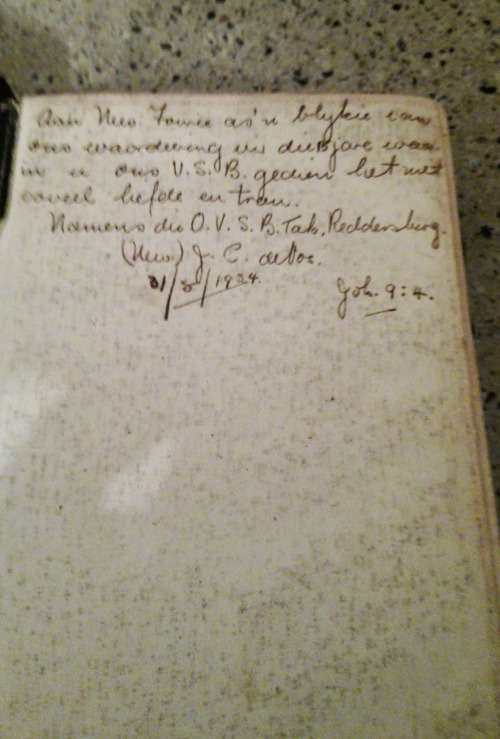 Aan Mev. Fourie as 'n blykie van
ons waardering vir die jare waar
in u ons V.S.B. gedien het met
soveel liefde en trou.
Namens die O.V.S.B. Tak, Reddersburg.
(Mev.) J. C. de Vos.
31/8/1924.
Joh. 9:4.